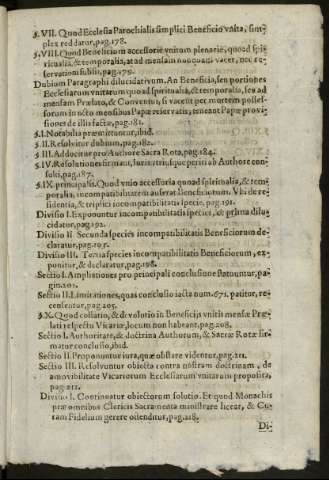 §. VII. Quod Ecclesia Parochialis simplici Beneficio vnita, sim-
plex reddatur, pag. 178.
§. VIII. Quod Beneficium accessorie vnitum plenariè, quoad spi-
ritualia, & temporalia, at ad mensam nonquam vacet, nec re-
seruationi subsit, pag. 179.
Dubium Paragraphi dilucidatiuum. An Beneficia, seu portiones
Ecclesiarum vnitarum quoad spiritualia, & temporalia, seu ad
mensam Prælato, & Conuentui, si vacent per mortem posses-
sorum in octo mensibus Papæ reseruatis, teneant Papæ proui-
siones de illis factæ, pag. 181.
§. I. Notabilia præmittuntur, ibid.
§. II. Resoluitur dubium, pag. 182.
§. III. Adducitur pro Authore Sacra Rota, pag. 184.
§. IV. Resolutiones firmatæ, iuris viris, sique periti ab Authore con-
sulti, pag. 187.
§. IX. principalis. Quod vnio accessoria quoad spiritualia, & tem-
poralia, incompatibilitatem auferat Beneficiorum. Vbi de re-
sidentia, & triplici incompatibilitatis specie. pag. 191.
Diuisio I. Exponuntur incompatibilitatis species, & prima dilu-
cidatur, pag. 192.
Diuisio II. Secunda species incompatibilitatis Beneficiorum de-
claratur, pag. 195.
Diuisio III. Tertia species incompatibilitatis Beneficiorum, ex-
ponitur, & declaratur, pag. 198.
Sectio I. Ampliationes pro principali conclusione statuuntur, pa-
gin. 202.
Sectio II. Limitationes, quas conclusio iacta num. 671. patitur, re-
censentur, pag. 205.
§. X. Quod collatio, & deuolutio in Beneficijs vnitis mensæ Præ-
lati respectu Vicariæ, locum non habeant, pag. 208.
Sectio I. Authoritate, & doctrina Authorum, & Sacræ Rotæ fir-
matur conclusio, ibid.
Sectio II. Proponuntur iura, quæ obstare videntur, pag. 211.
Sectio III. Resoluuntur obiecta contra nostram doctrinam, de
amouibilitate Vicariorum Ecclesiarum vnitarum proposita,
pag. 212.
Diuisio I. Continuatur obiectorum solutio. Et quod Monachis
præ omnibus Clericis Sacramenta ministrare liceat, & Cu-
ram Fidelium gerere ostenditur, pag. 218.
Di-